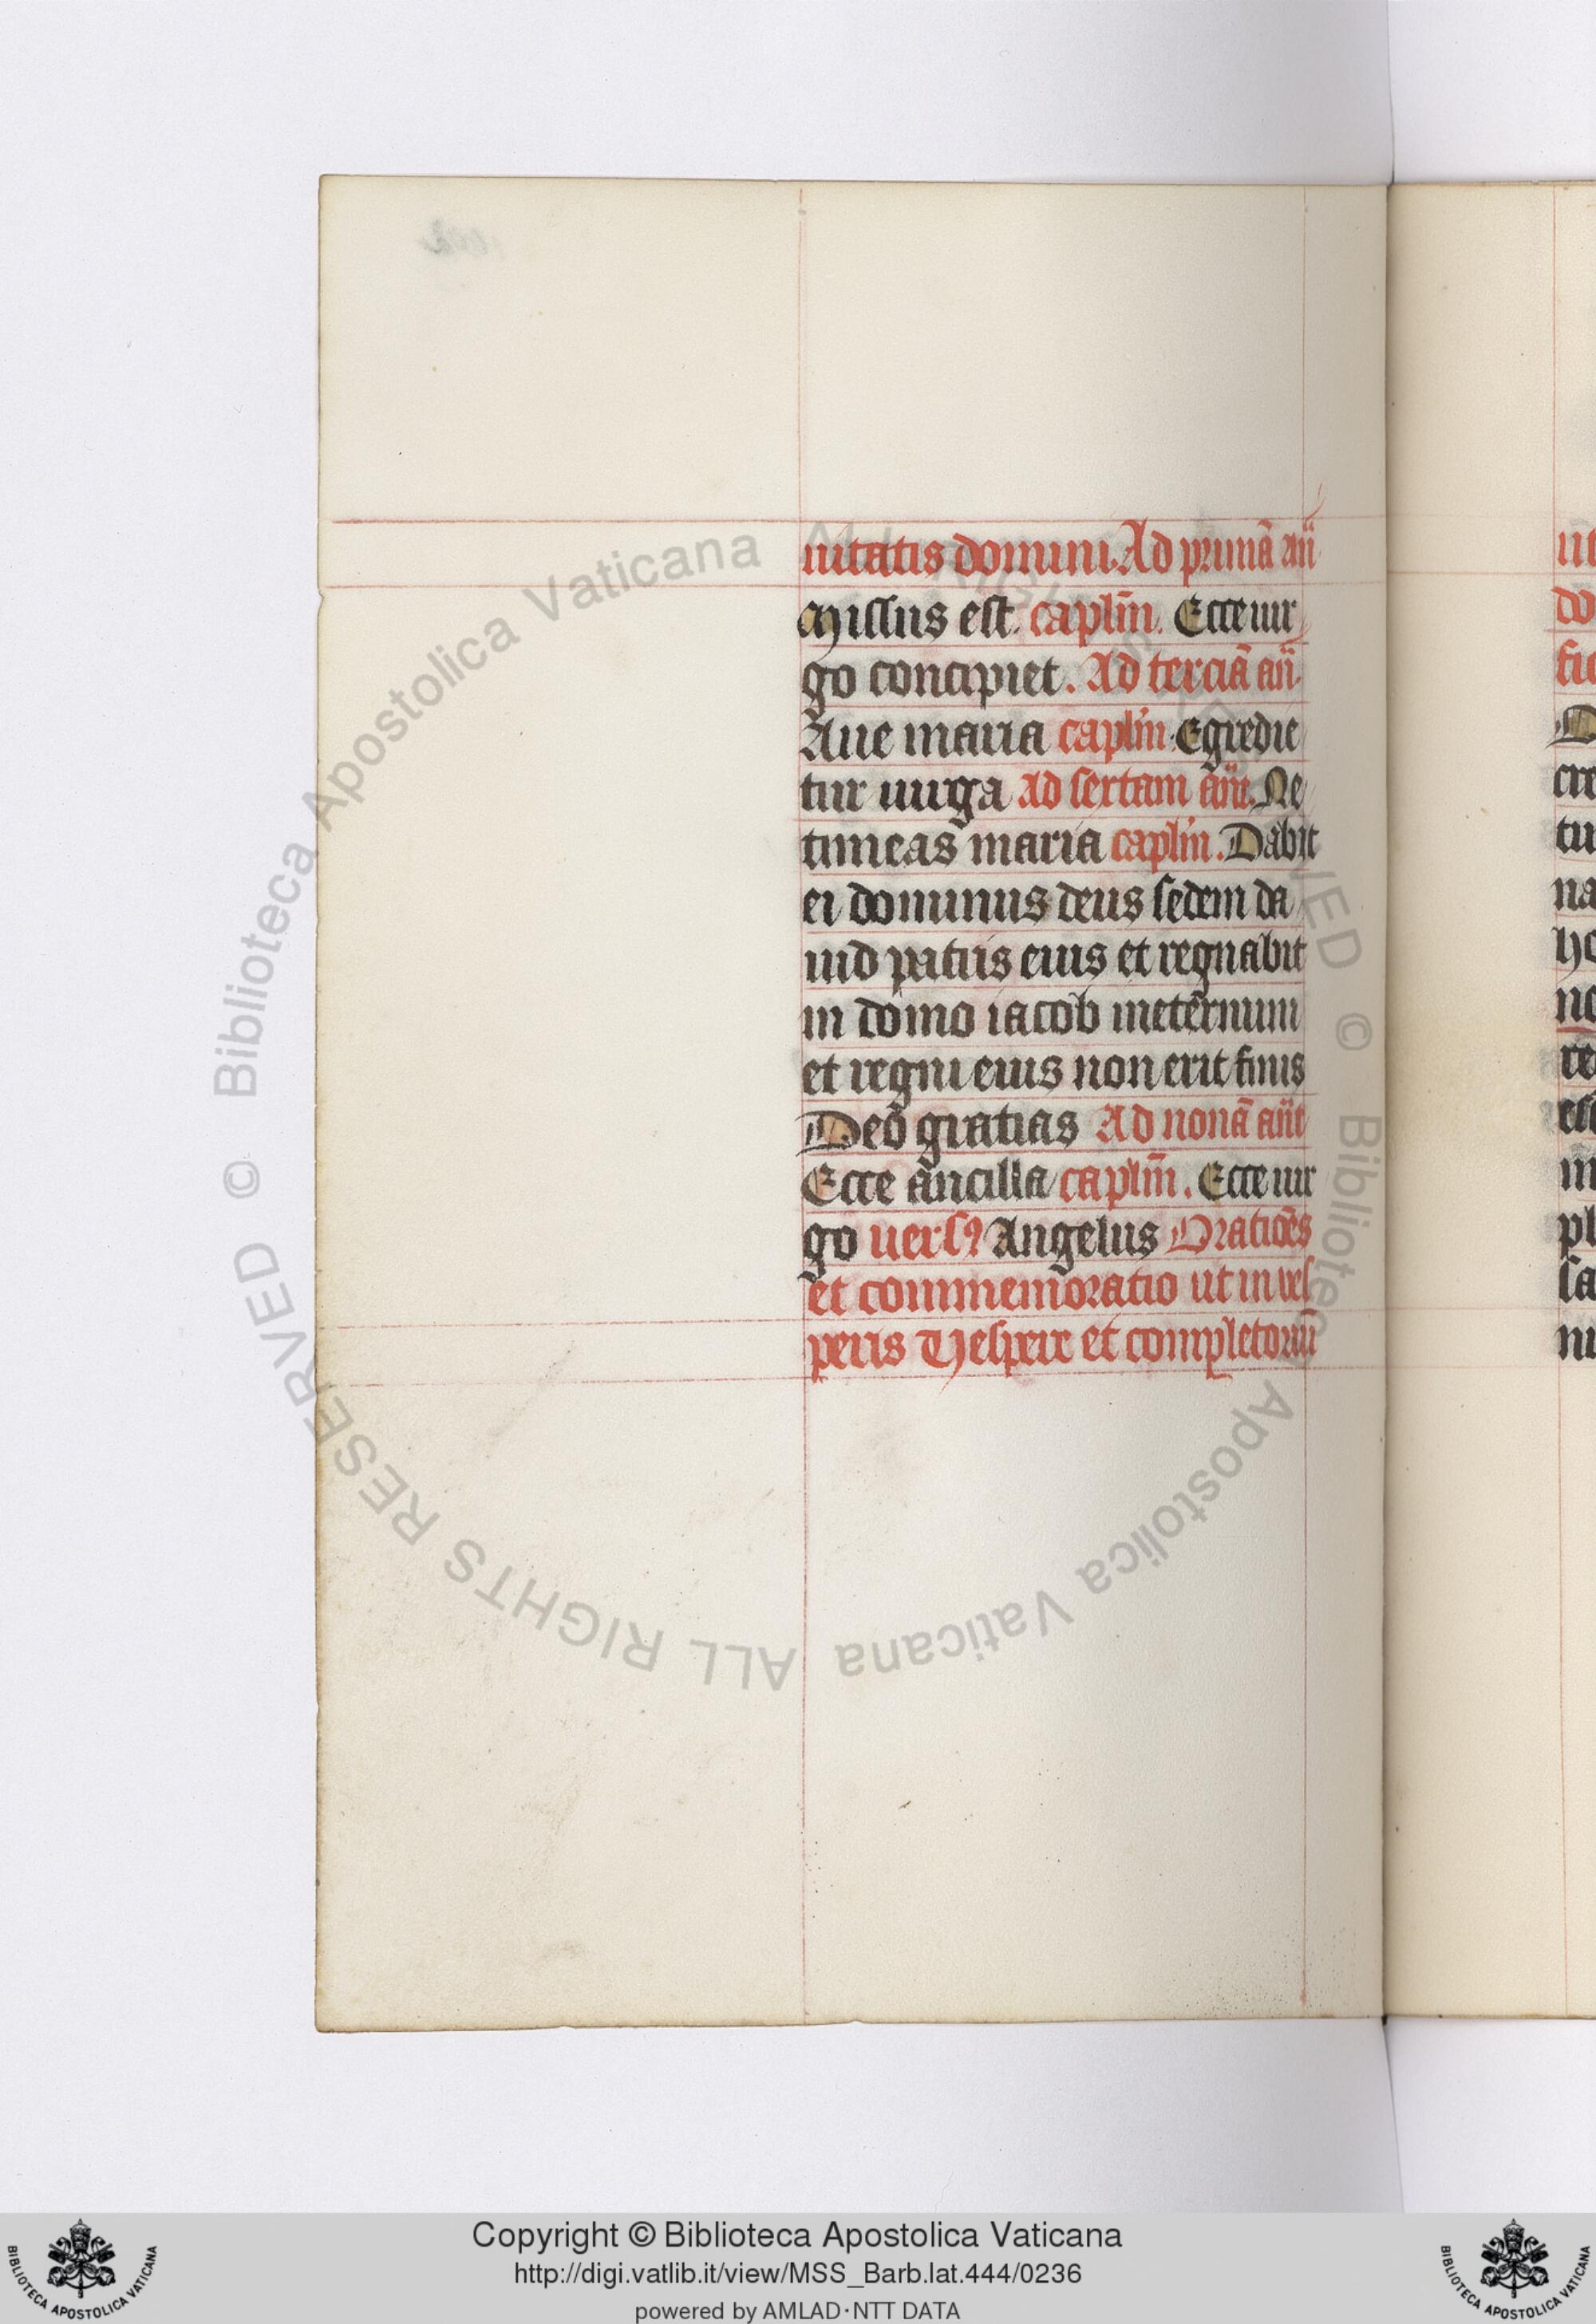 uitatis domini. Ad primã añ
Missus est. caplm̃. Ecce uir
go concipiet. Ad terciã añ.
Aue maria caplm̃. Egredie
tur uirga Ad sextam añt. Ne
timeas maria caplm̃. Dabit
ei dominus deus sedem da
uid patris eius et regnabit
in domo iacob ineternum
et regni eius non erit finis
Deo gratias Ad nonã añt
Ecce ancilla caplm̃. Ecce uir
go uersꝰ Angelus Oratiões
et commemoratio ut in ves
peris Vespere et completoriũ
Copyright © Biblioteca Apostolica Vaticana
http://digi.vatlib.it/view/MSS_Barb.lat.444/0236
powered by AMLAD·NTT DATA
BIBLIOTECA APOSTOLICA VATICANA
BIBLIOTECA APOSTOLICA VATICANA
© Biblioteca Apostolica Vaticana ALL RIGHTS RESERVED © Biblioteca Apostolica Vaticana ALL RIGHTS RESERVED